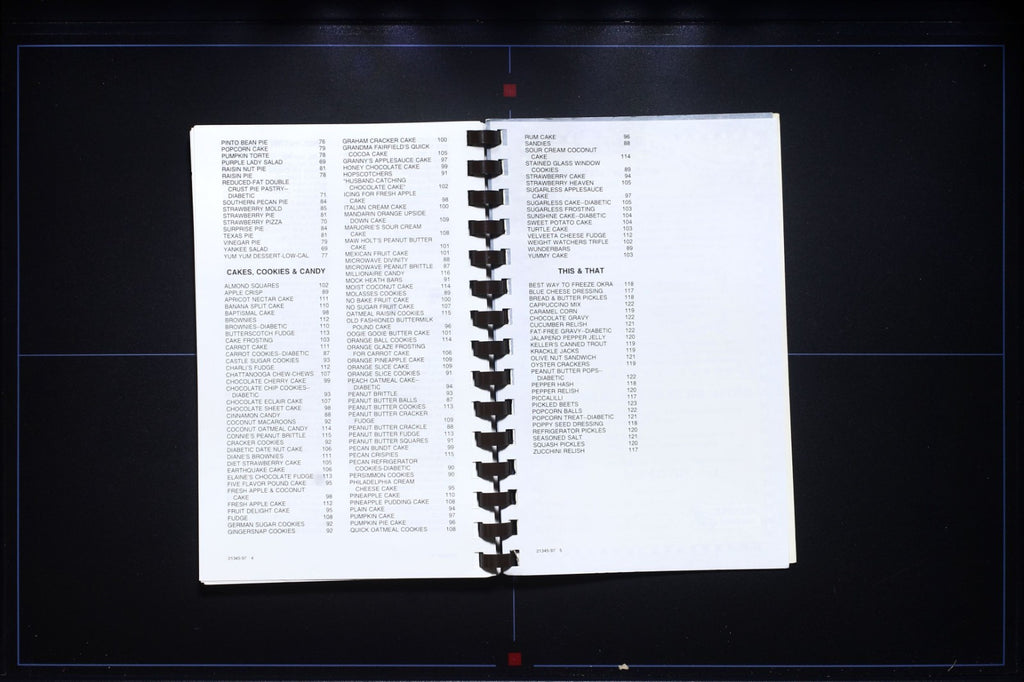 PINTO BEAN PIE 76
POPCORN CAKE 79
PUMPKIN TORTE 78
PURPLE LADY SALAD 69
RAISIN NUT PIE 81
RAISIN PIE 78
REDUCED-FAT DOUBLE
CRUST PIE PASTRY--
DIABETIC 71
SOUTHERN PECAN PIE 84
STRAWBERRY MOLD 85
STRAWBERRY PIE 81
STRAWBERRY PIZZA 70
SURPRISE PIE 84
TEXAS PIE 81
VINEGAR PIE 79
YANKEE SALAD 69
YUM YUM DESSERT-LOW-CAL 77
CAKES, COOKIES & CANDY
ALMOND SQUARES 102
APPLE CRISP 89
APRICOT NECTAR CAKE 111
BANANA SPLIT CAKE 110
BAPTISMAL CAKE 98
BROWNIES 112
BROWNIES--DIABETIC 110
BUTTERSCOTCH FUDGE 113
CAKE FROSTING 103
CARROT CAKE 111
CARROT COOKIES--DIABETIC 87
CASTLE SUGAR COOKIES 93
CHARLI'S FUDGE 112
CHATTANOOGA CHEW-CHEWS 107
CHOCOLATE CHERRY CAKE 99
CHOCOLATE CHIP COOKIES--
DIABETIC 93
CHOCOLATE ECLAIR CAKE 107
CHOCOLATE SHEET CAKE 98
CINNAMON CANDY 88
COCONUT MACAROONS 92
COCONUT OATMEAL CANDY 114
CONNIE'S PEANUT BRITTLE 115
CRACKER COOKIES 92
DIABETIC DATE NUT CAKE 106
DIANE'S BROWNIES 111
DIET STRAWBERRY CAKE 105
EARTHQUAKE CAKE 106
ELAINE'S CHOCOLATE FUDGE 113
FIVE FLAVOR POUND CAKE 95
FRESH APPLE & COCONUT
CAKE 98
FRESH APPLE CAKE 112
FRUIT DELIGHT CAKE 95
FUDGE 108
GERMAN SUGAR COOKIES 92
GINGERSNAP COOKIES 92
21345-97 4
GRAHAM CRACKER CAKE 100
GRANDMA FAIRFIELD'S QUICK
COCOA CAKE 105
GRANNY'S APPLESAUCE CAKE 97
HONEY CHOCOLATE CAKE 99
HOPSCOTCHERS 91
"HUSBAND-CATCHING
CHOCOLATE CAKE" 102
ICING FOR FRESH APPLE
CAKE 98
ITALIAN CREAM CAKE 100
MANDARIN ORANGE UPSIDE
DOWN CAKE 109
MARJORIE'S SOUR CREAM
CAKE 108
MAW HOLT'S PEANUT BUTTER
CAKE 101
MEXICAN FRUIT CAKE 101
MICROWAVE DIVINITY 88
MICROWAVE PEANUT BRITTLE 87
MILLIONAIRE CANDY 116
MOCK HEATH BARS 91
MOIST COCONUT CAKE 114
MOLASSES COOKIES 89
NO BAKE FRUIT CAKE 100
NO SUGAR FRUIT CAKE 107
OATMEAL RAISIN COOKIES 115
OLD FASHIONED BUTTERMILK
POUND CAKE 96
OOGIE GOOIE BUTTER CAKE 101
ORANGE BALL COOKIES 114
ORANGE GLAZE FROSTING
FOR CARROT CAKE 106
ORANGE PINEAPPLE CAKE 109
ORANGE SLICE CAKE 109
ORANGE SLICE COOKIES 91
PEACH OATMEAL CAKE--
DIABETIC 94
PEANUT BRITTLE 93
PEANUT BUTTER BALLS 87
PEANUT BUTTER COOKIES 113
PEANUT BUTTER CRACKER
FUDGE 109
PEANUT BUTTER CRACKLE 88
PEANUT BUTTER FUDGE 113
PEANUT BUTTER SQUARES 91
PECAN BUNDT CAKE 99
PECAN CRISPIES 115
PECAN REFRIGERATOR
COOKIES-DIABETIC 90
PERSIMMON COOKIES 90
PHILADELPHIA CREAM
CHEESE CAKE 95
PINEAPPLE CAKE 110
PINEAPPLE PUDDING CAKE 108
PLAIN CAKE 94
PUMPKIN CAKE 97
PUMPKIN PIE CAKE 96
QUICK OATMEAL COOKIES 108
RUM CAKE 96
SANDIES 88
SOUR CREAM COCONUT
CAKE 114
STAINED GLASS WINDOW
COOKIES 89
STRAWBERRY CAKE 94
STRAWBERRY HEAVEN 105
SUGARLESS APPLESAUCE
CAKE 97
SUGARLESS CAKE--DIABETIC 105
SUGARLESS FROSTING 103
SUNSHINE CAKE--DIABETIC 104
SWEET POTATO CAKE 104
TURTLE CAKE 103
VELVEETA CHEESE FUDGE 112
WEIGHT WATCHERS TRIFLE 102
WUNDERBARS 89
YUMMY CAKE 103
THIS & THAT
BEST WAY TO FREEZE OKRA 118
BLUE CHEESE DRESSING 117
BREAD & BUTTER PICKLES 118
CAPPUCCINO MIX 122
CARAMEL CORN 119
CHOCOLATE GRAVY 122
CUCUMBER RELISH 121
FAT-FREE GRAVY--DIABETIC 122
JALAPENO PEPPER JELLY 120
KELLER'S CANNED TROUT 119
KRACKLE JACKS 119
OLIVE NUT SANDWICH 121
OYSTER CRACKERS 119
PEANUT BUTTER POPS--
DIABETIC 122
PEPPER HASH 118
PEPPER RELISH 120
PICCALILLI 117
PICKLED BEETS 123
POPCORN BALLS 122
POPCORN TREAT--DIABETIC 121
POPPY SEED DRESSING 118
REFRIGERATOR PICKLES 120
SEASONED SALT 121
SQUASH PICKLES 120
ZUCCHINI RELISH 117
21345-97 5